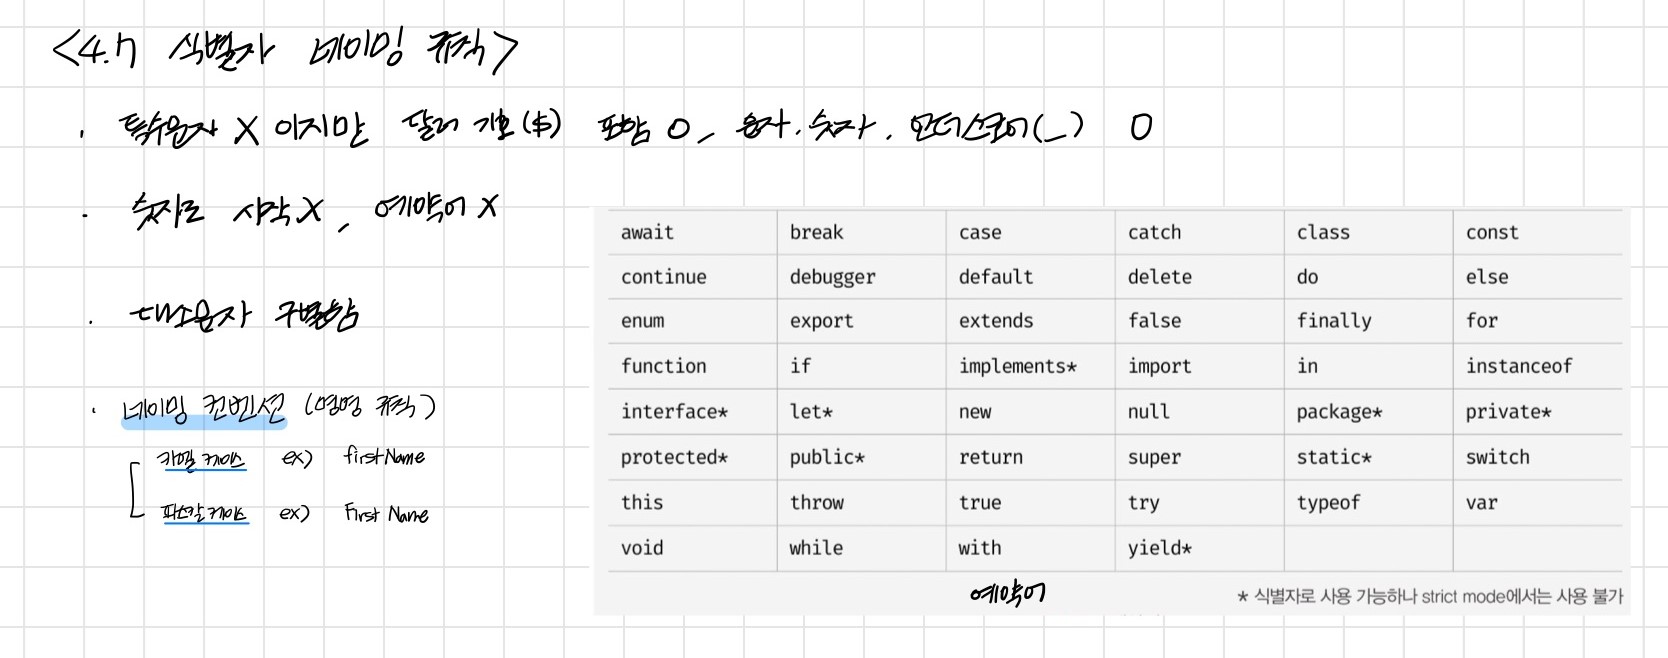 <4.7 식별자 네이밍 규칙>
· 특수문자 X 이지만 달러 기호($) 포함 O, 문자, 숫자, 언더스코어(_) O
· 숫자로 시작 X, 예약어 X
· 대소문자 구별함
· 네이밍 컨벤션 (명명 규칙)
카멜 케이스 ex) firstName
파스칼 케이스 ex) FirstName
await break case catch class const
continue debugger default delete do else
enum export extends false finally for
function if implements* import in instanceof
interface* let* new null package* private*
protected* public* return super static* switch
this throw true try typeof var
void while with yield*
예약어
* 식별자로 사용 가능하나 strict mode에서는 사용 불가